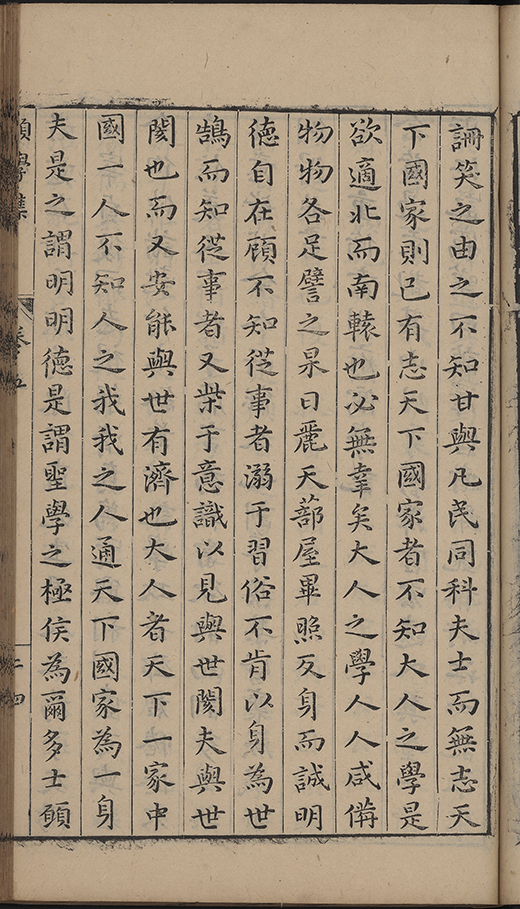 訕笑之由之不知甘與凡民同科夫士而無志天
下國家則已有志天下國家者不知大人之學是
欲適北而南轅也必無幸矣大人之學人人咸僃
物物各足譬之杲日麗天蔀屋畢照反身而誠明
德自在顧不知從事者溺于習俗不肯以身為世
鵠而知從事者又柴于意識以見與世閡夫與世
閡也而又安能與世有濟也大人者天下一家中
國一人不知人之我我之人通天下國家為一身
夫是之謂明明德是謂聖學之極侯為爾多士願
學集
卷五
二四